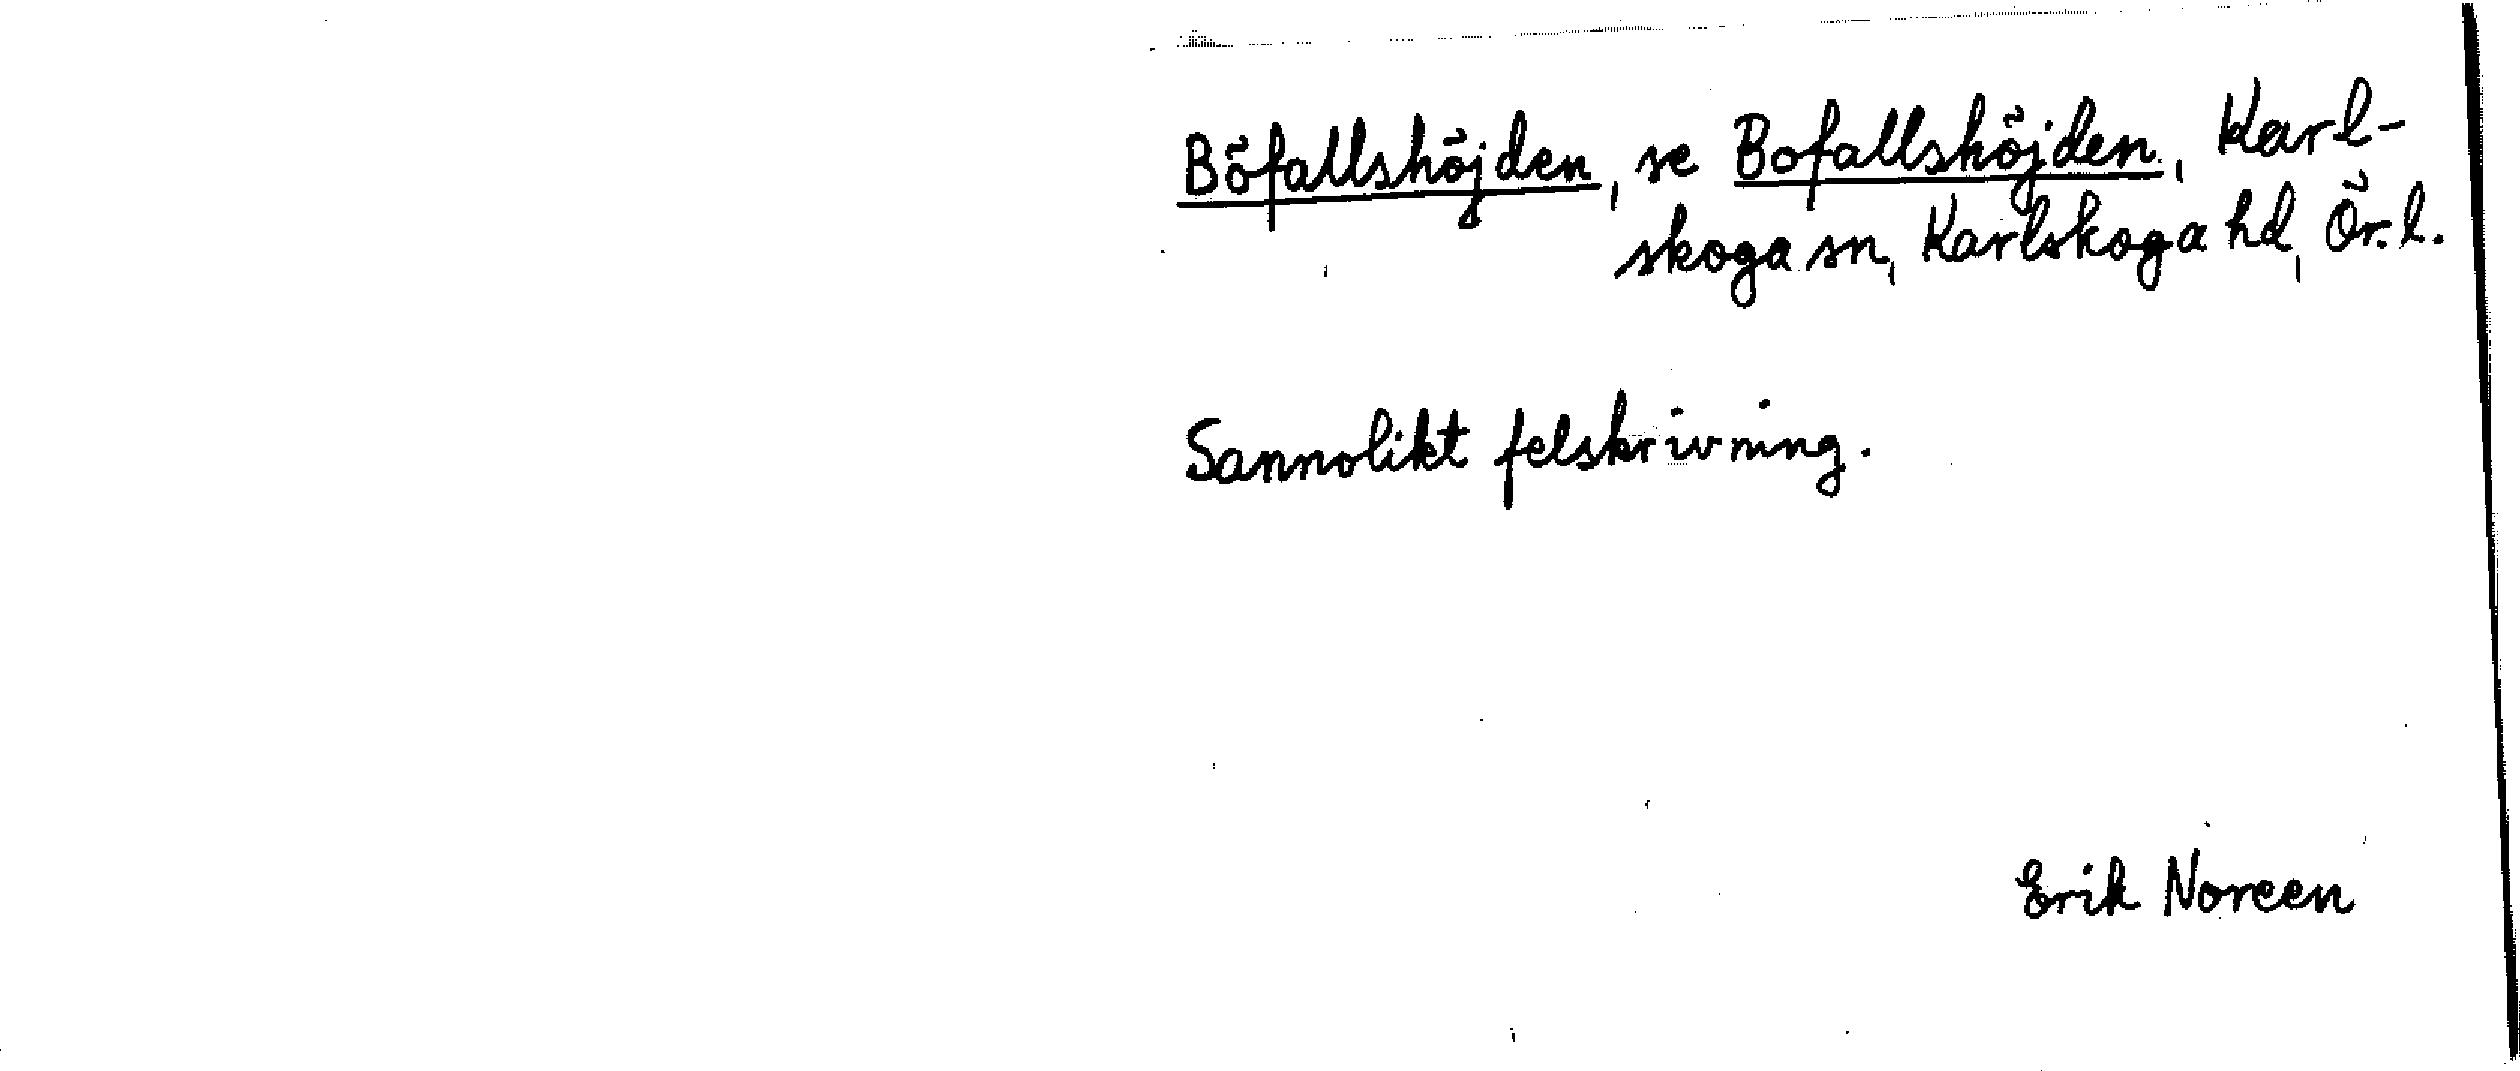 Böfallshöjden, se Bofallshöjden, Karl-
skoga sn, Karlskoga hd, Ör. l.
Sannolikt felskrivning.
Erik Noreen